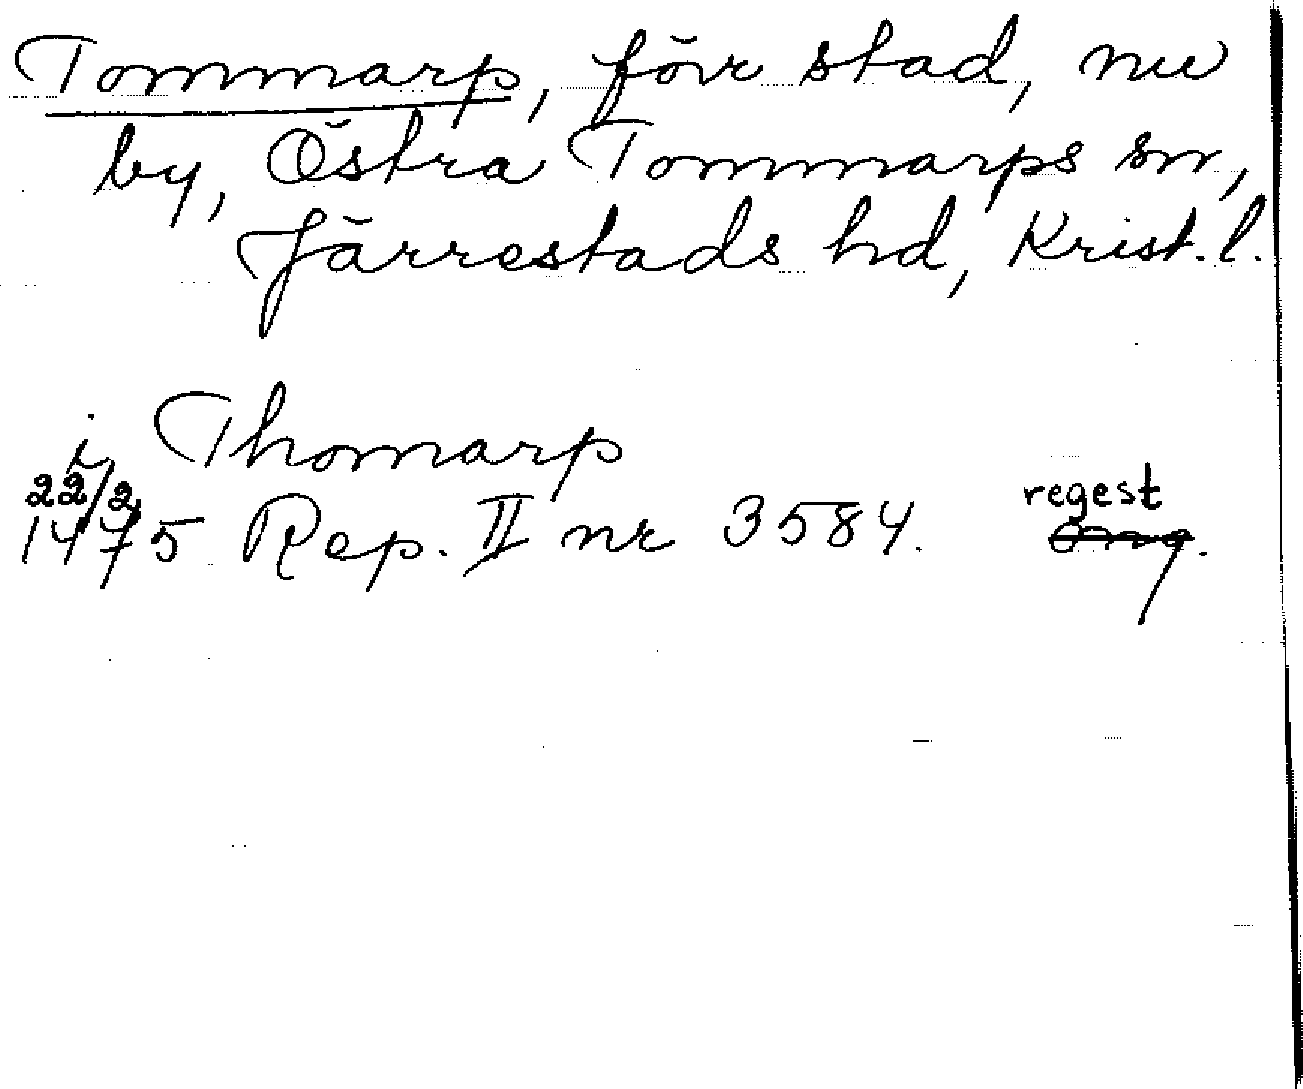 Tommarp, förr stad, nu
by, Östra Tommarps sn,
Järrestads hd, Krist. l.
i Thomarp
22/2 regest
1475 Rep. II nr 3584. Orig.